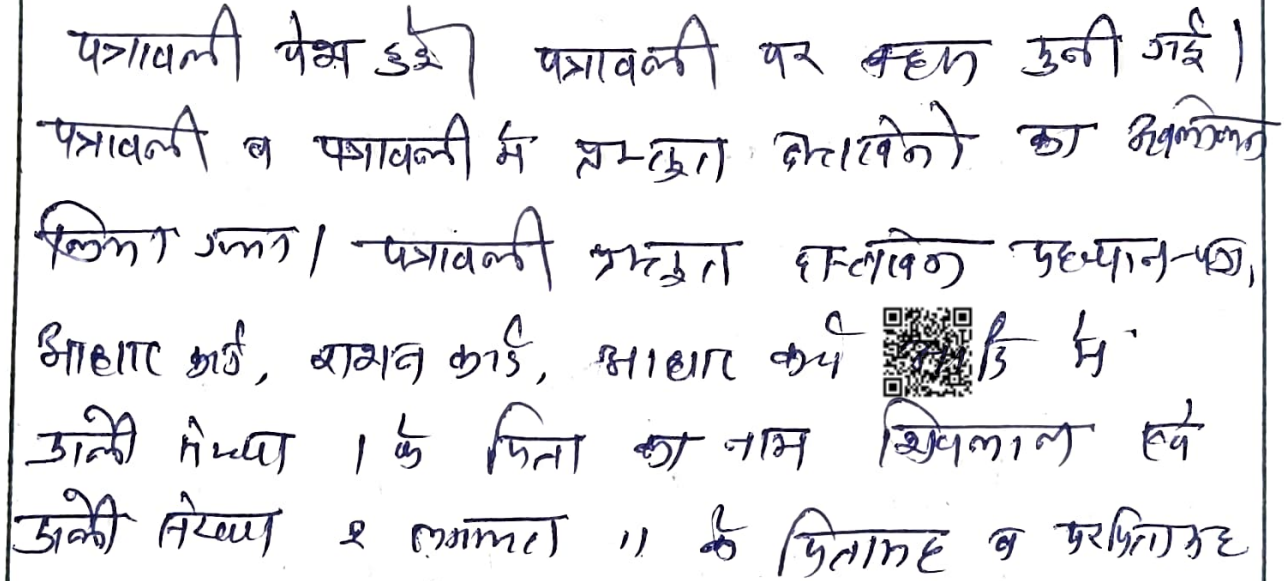 पत्रावली पेश हुई। पत्रावली पर बहस सुनी गई।
पत्रावली व पत्रावली में प्रस्तुत दस्तावेजो का अवलोकन
किया गया। पत्रावली प्रस्तुत दस्तावेज पहचान-पत्र,
आधार कार्ड, राशन कार्ड, आधार कार्ड में
प्रार्थी संख्या 1 के पिता का नाम शिवलाल एवं
प्रार्थी संख्या 2 लगायत 11 के पितामह व परपितामह